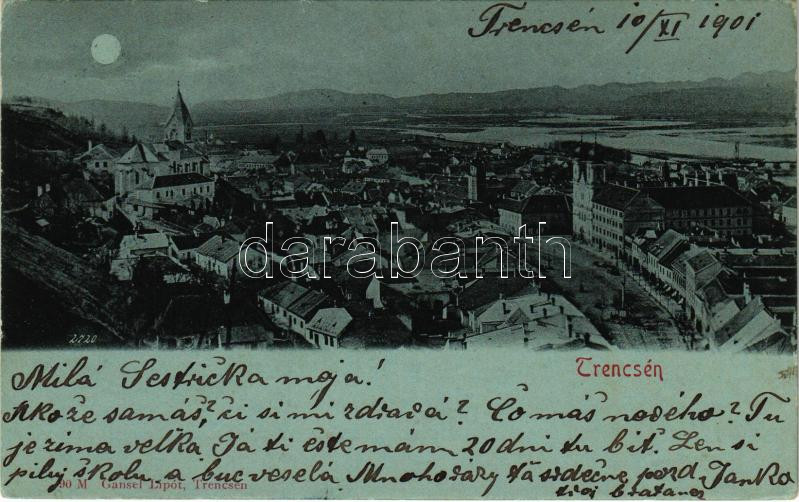 Trencsén 10/XI 1901
darabanth.com
2720
Trencsén
Milá Sestrička moja!
Akože samáš? či si mi zdravá? Čo máš nového? Tu
je zima veľká Já ti éšte mám 20 dni tu biť. Len si
piluj školu a buc veselá Mnohorazy ťa srdečne pozd. Janko
tvoj bratanec
90 M Gansel Lipót, Trencsén